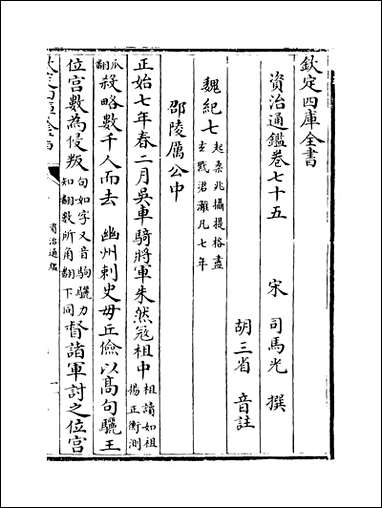 欽定四庫全書
資治通鑑卷七十五
宋 司馬光 撰
胡三省 音註
魏紀七 起柔兆攝提格盡
玄黓涒灘凡七年
邵陵厲公中
正始七年春二月吳車騎將軍朱然寇柤中 柤讀如租
楊正衡測
瓜
翻 殺略數千人而去 幽州刺史毋丘儉以高句驪王
位宮數為侵叛 句如字又音駒驪力
知翻數所角翻下同 督諸軍討之位宮
資治通鑑